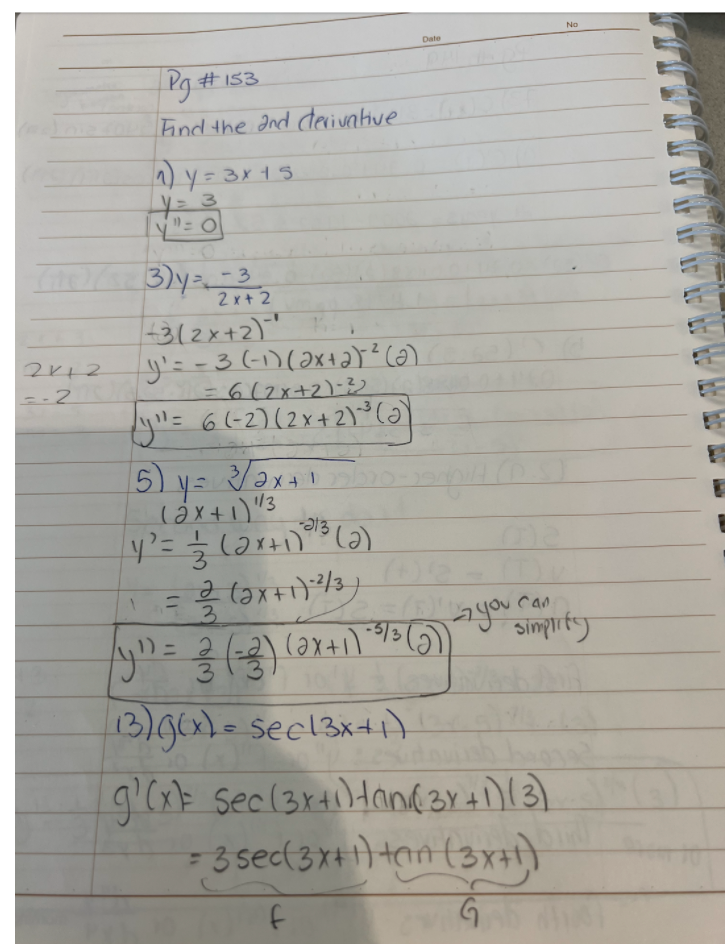 No
Date
Pg # 153
Find the 2nd derivative
1) y = 3x + 5
y = 3
y'' = 0
3) y = -3 / 2x + 2
-3(2x+2)^-1
2x + 2
= -2
y' = -3(-1)(2x+2)^-2 (2)
= 6(2x+2)^-2
y'' = 6(-2)(2x+2)^-3 (2)
5) y = ∛2x+1
(2x+1)^1/3
y' = 1/3 (2x+1)^-2/3 (2)
= 2/3 (2x+1)^-2/3
→ you can
simplify
y'' = 2/3 (-2/3) (2x+1)^-5/3 (2)
13) g(x) = sec(3x+1)
g'(x) = sec(3x+1)tan(3x+1)(3)
= 3sec(3x+1)tan(3x+1)
f G